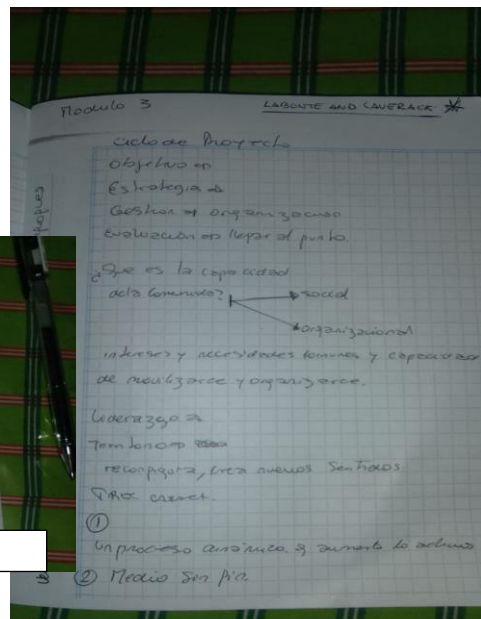 Modulo 3
LABONTE AND LAVERACK
ciclo de Proyecto
Objetivo
Estrategia
Gestion organizacion
Evaluación llegar al punto.
¿Que es la capacidad
de la comunidad?
social
organizacional
intereses y necesidades comunes y capacidad
de movilizarce y organizarce.
Liderazgo
Territorio
reconfigura, crea nuevos Sentidos
①
Un proceso dinámico y aumenta lo
② Medio Sin fin.